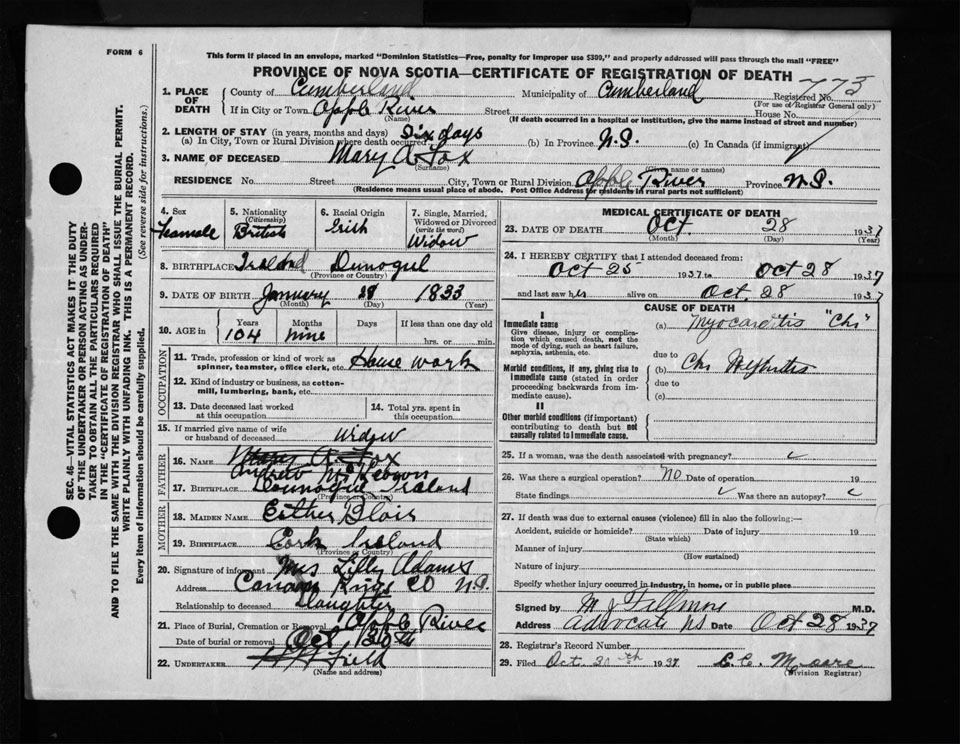 FORM 6
This form if placed in an envelope, marked "Dominion Statistics—Free, penalty for improper use $300," and properly addressed will pass through the mail "FREE"
PROVINCE OF NOVA SCOTIA—CERTIFICATE OF REGISTRATION OF DEATH
773
1. PLACE OF DEATH
County of Cumberland Municipality of Cumberland Registered No.
(For use of Registrar General only)
If in City or Town Apple River Street House No.
(Name) (If death occurred in a hospital or institution, give the name instead of street and number)
2. LENGTH OF STAY (in years, months and days) Six days
(a) In City, Town or Rural Division where death occurred (b) In Province N.S. (c) In Canada (if immigrant)
3. NAME OF DECEASED Mary A. Fox
(Surname) (Given name or names)
RESIDENCE No. Street City, Town or Rural Division Apple River Province N.S.
(Residence means usual place of abode. Post Office address for residents in rural parts not sufficient)
4. Sex
Feamale
5. Nationality (Citizenship)
British
6. Racial Origin
Irish
7. Single, Married, Widowed or Divorced (write the word)
Widow
8. BIRTHPLACE Ireland
(Province or Country)
9. DATE OF BIRTH January 28 1833
(Month) (Day) (Year)
10. AGE in Years Months Days If less than one day old
104 nine hrs. or min.
OCCUPATION
11. Trade, profession or kind of work as spinner, teamster, office clerk, etc. House work
12. Kind of industry or business, as cotton-mill, lumbering, bank, etc.
13. Date deceased last worked at this occupation
14. Total yrs. spent in this occupation
15. If married give name of wife or husband of deceased widow
FATHER
16. NAME Mary A. Fox
Andrew
17. BIRTHPLACE Ireland
(Province or Country)
MOTHER
18. MAIDEN NAME Esther Blair
19. BIRTHPLACE Cork Ireland
(Province or Country)
20. Signature of informant Mrs Lilly Adams
Address Kings CO N.S.
Relationship to deceased Daughter
21. Place of Burial, Cremation or Removal Apple River
Date of burial or removal Oct 30th
22. UNDERTAKER Field
(Name and address)
MEDICAL CERTIFICATE OF DEATH
23. DATE OF DEATH Oct 28 1937
(Month) (Day) (Year)
24. I HEREBY CERTIFY that I attended deceased from:
Oct 25 1937 to Oct 28 1937
and last saw her alive on Oct. 28 1937
CAUSE OF DEATH
I
Immediate cause
Give disease, injury or complication which caused death, not the mode of dying, such as heart failure, asphyxia, asthenia, etc.
(a) Myocarditis "Chr"
due to
Morbid conditions, if any, giving rise to immediate cause (stated in order proceeding backwards from immediate cause).
(b) Chr Nephritis
due to
(c)
II
Other morbid conditions (if important) contributing to death but not causally related to immediate cause.
25. If a woman, was the death associated with pregnancy?
26. Was there a surgical operation? no Date of operation 19
State findings Was there an autopsy?
27. If death was due to external causes (violence) fill in also the following:—
Accident, suicide or homicide? Date of injury 19
(State which)
Manner of injury
(How sustained)
Nature of injury
Specify whether injury occurred in industry, in home, or in public place
Signed by M J Fillmore M.D.
Address Advocate NS Date Oct 28 1937
28. Registrar's Record Number
29. Filed Oct. 30th 1937 Moore
(Division Registrar)
SEC. 46—VITAL STATISTICS ACT MAKES IT THE DUTY
OF THE UNDERTAKER OR PERSON ACTING AS UNDER-
TAKER TO OBTAIN ALL THE PARTICULARS REQUIRED
IN THE "CERTIFICATE OF REGISTRATION OF DEATH"
AND TO FILE THE SAME WITH THE DIVISION REGISTRAR WHO SHALL ISSUE THE BURIAL PERMIT.
WRITE PLAINLY WITH UNFADING INK. THIS IS A PERMANENT RECORD.
Every item of information should be carefully supplied. (See reverse side for instructions.)